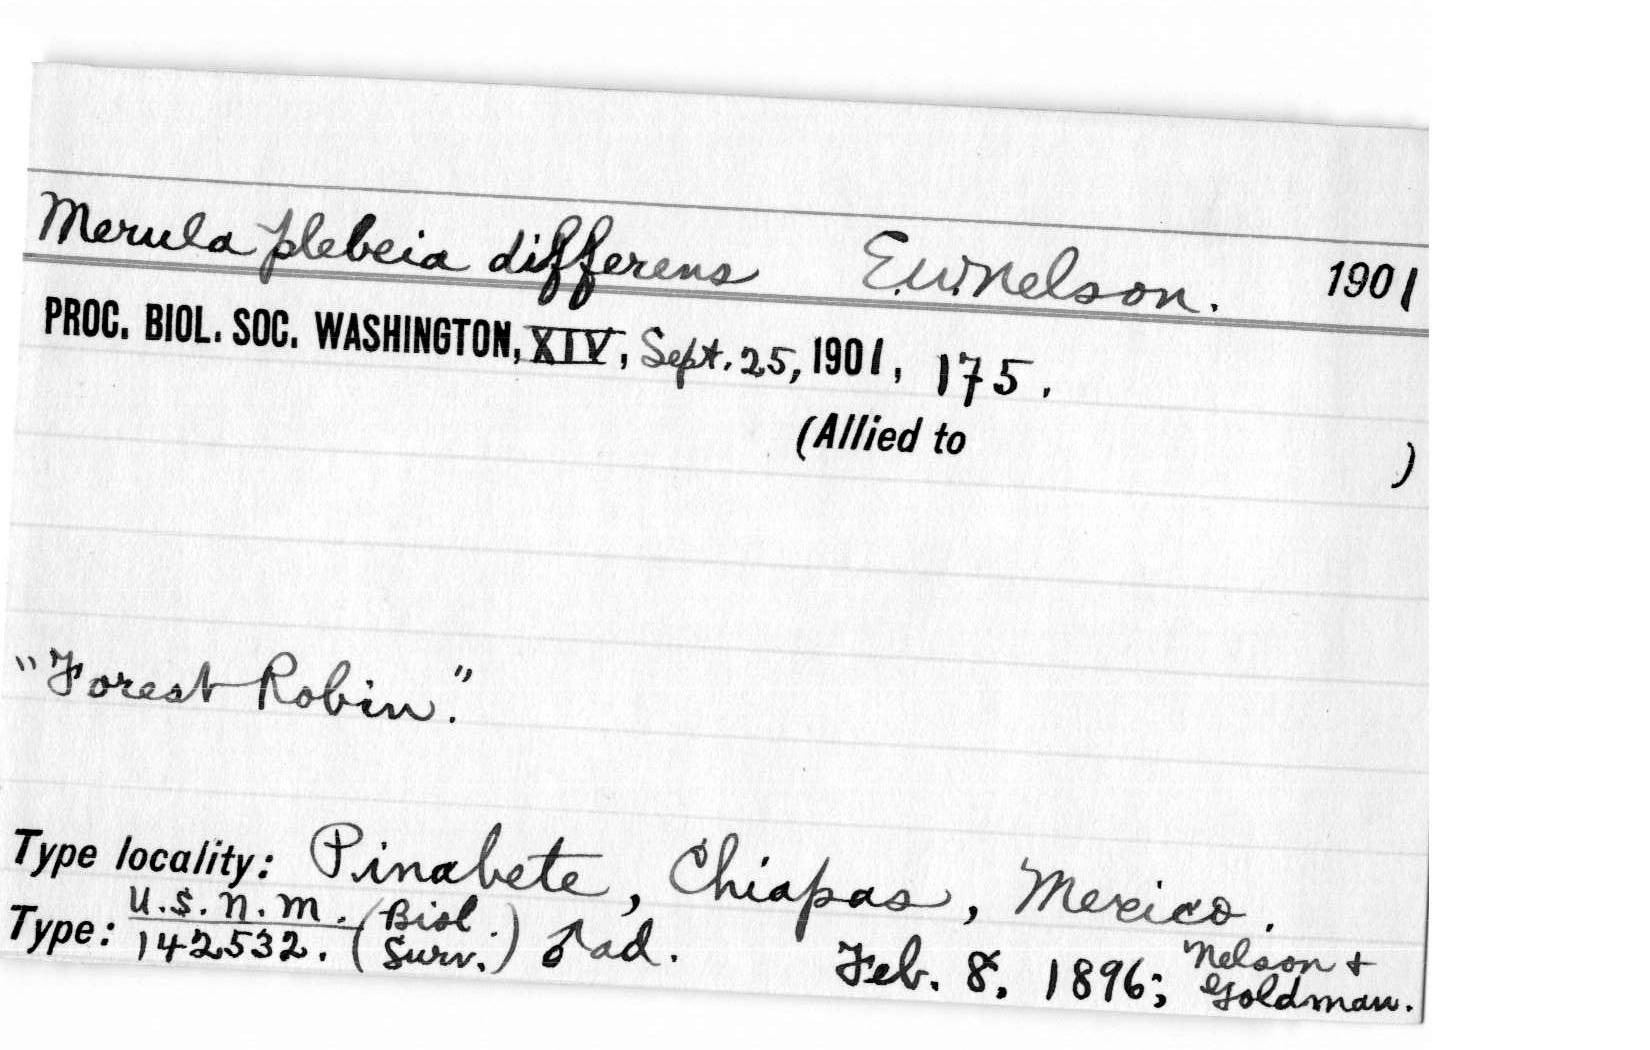 Merula plebeia differens E.W. Nelson. 1901
PROC. BIOL. SOC. WASHINGTON, XIV, Sept. 25, 1901, 175.
(Allied to )
"Forest Robin."
Type locality: Pinabete, Chiapas, Mexico.
Type: U.S.N.M. 142532. (Biol. Surv.) ♂ ad. Feb. 8, 1896; Nelson + Goldman.